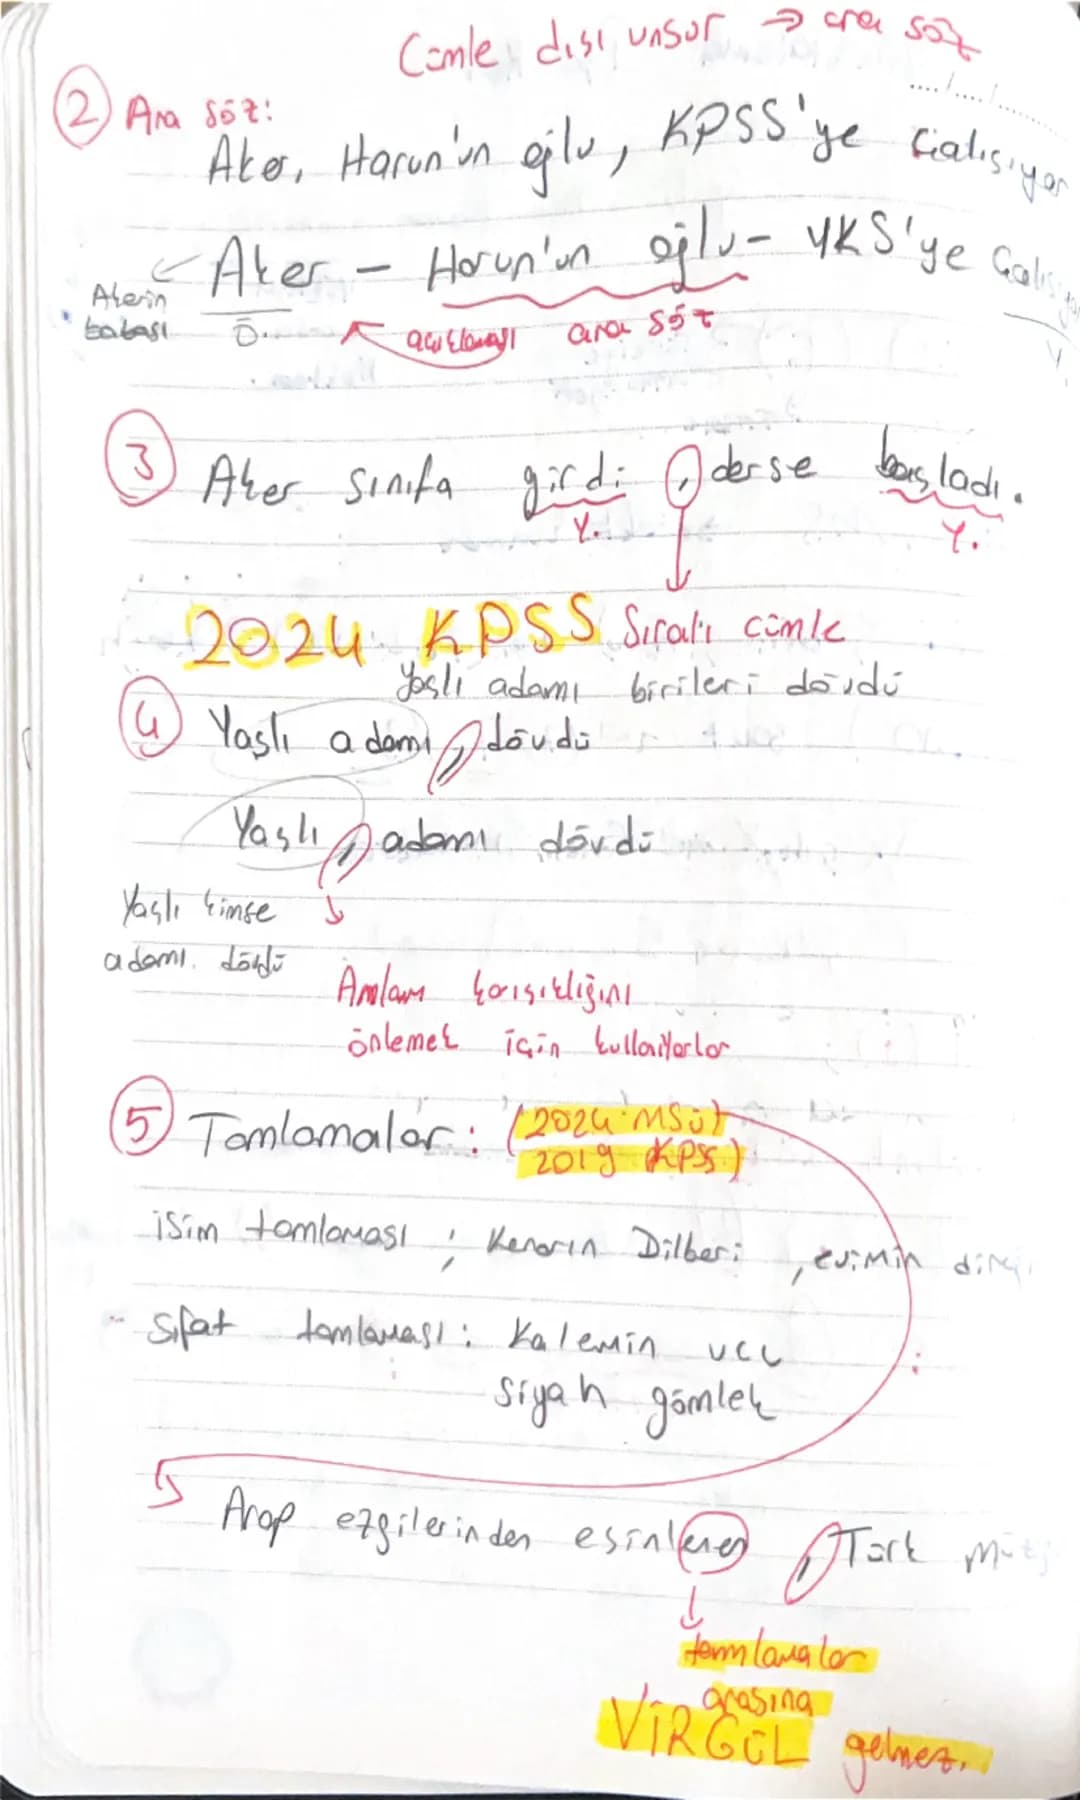 Cümle dışı unsur → ara söz
..../..../........
② Ara söz:
Aker, Harun'un oğlu, KPSS'ye Çalışıyor
← Aker – Harun'un oğlu – YKS'ye
Akerin
babası
Ö.
açıklamayı ara söz
Y
③ Aker sınıfa girdi , derse başladı.
Y. Y.
2024 KPSS Sıralı cümle
Yaşlı adamı birileri dövdü
④ Yaşlı adamı , dövdü
Yaşlı , adamı dövdü
Yaşlı kimse
adamı dövdü
Anlam karışıklığını
önlemek için
⑤ Tamlamalar: (2024 MSÜ
2019 KPSS)
isim tamlaması ; Kenarın Dilberi , evimin
- Sıfat tamlaması : Kalemin ucu
siyah gömlek
Arap ezgilerinden esinlenen , Türk
tamlamalar
arasına
VİRGÜL gelmez.